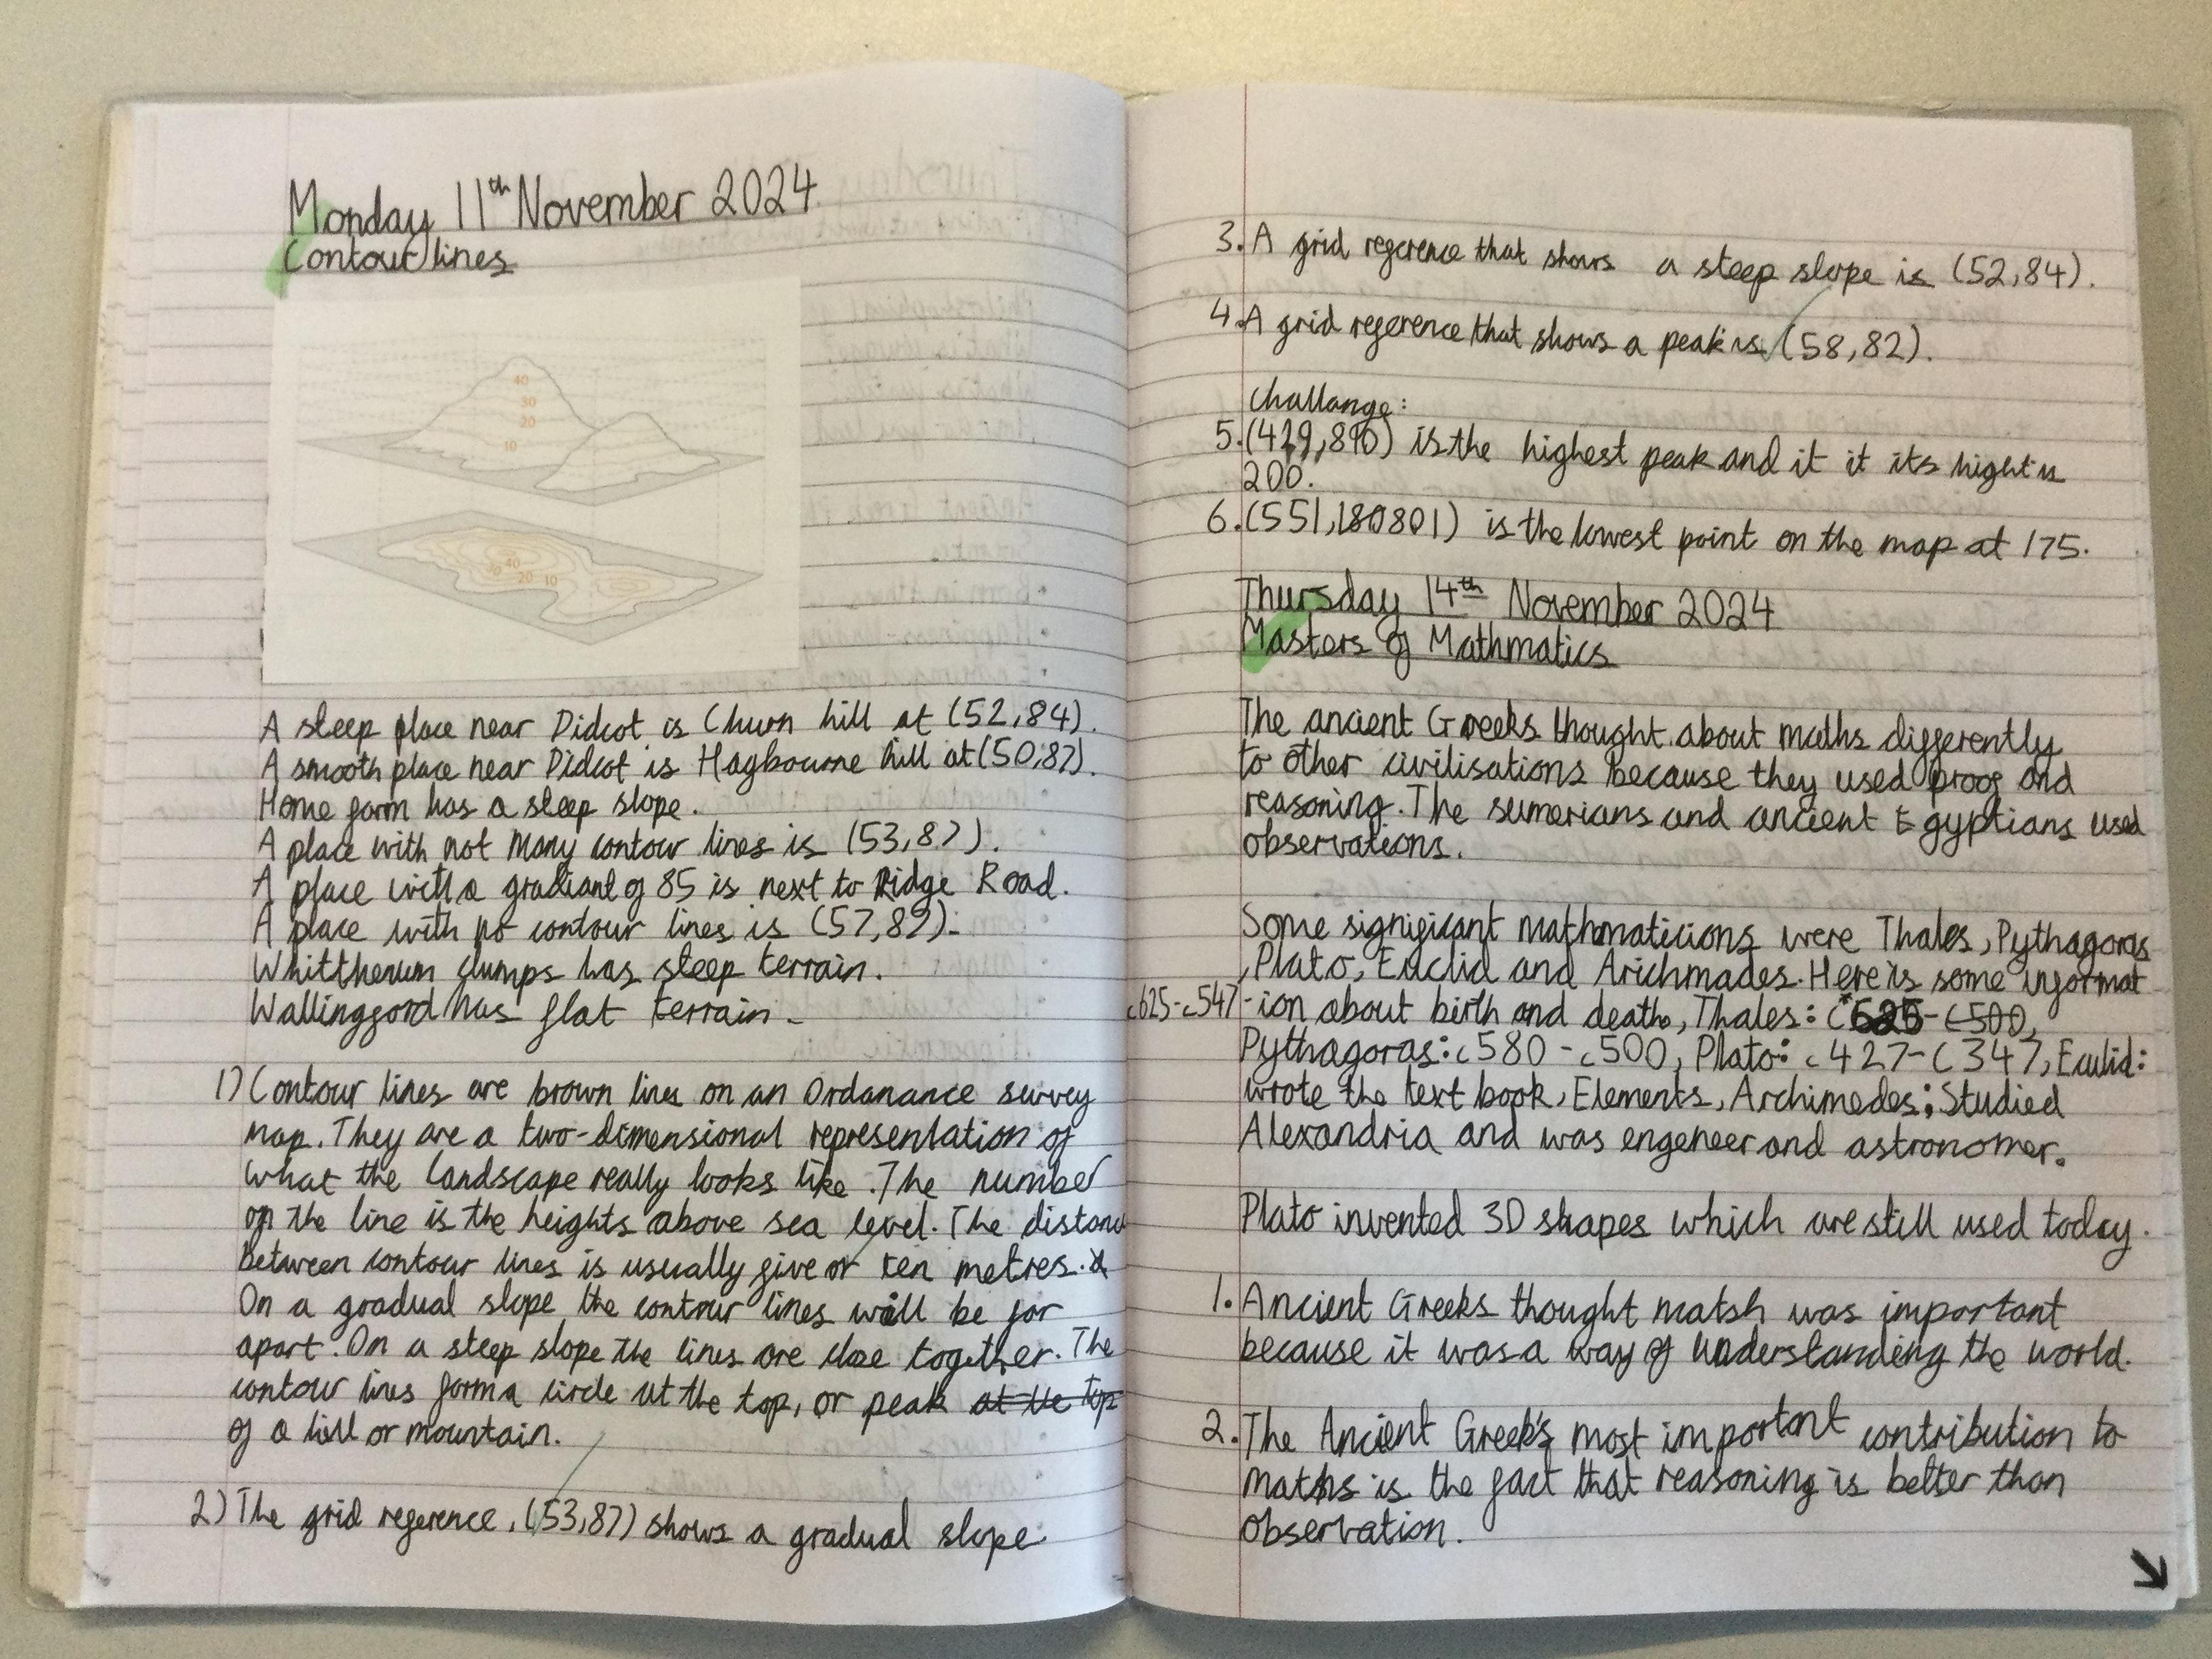 Monday 11th November 2024
Contour lines
40
30
20
10
40
30
20 10
A steep place near Didcot is Churn hill at (52,84).
A smooth place near Didcot is Hagbourne hill at (50,87).
Home farm has a steep slope.
A place with not many contour lines is (53,87).
A place with a gradiant of 85 is next to Ridge Road.
A place with no contour lines is (57,89).
Whitthenum clumps has steep terrain.
Wallingford has flat terrain.
1) Contour lines are brown lines on an Ordanance survey
map. They are a two-dimensional representation of
what the landscape really looks like. The number
on the line is the heights above sea level. The distance
between contour lines is usually five or ten metres.
On a gradual slope the contour lines will be far
apart. On a steep slope the lines are close together. The
contour lines form a circle at the top, or peak at the top
of a hill or mountain.
2) The grid reference, (53,87) shows a gradual slope.
3. A grid reference that shows a steep slope is (52,84).
4. A grid reference that shows a peak is (58,82).
Challange:
5. (429,890) is the highest peak and it it its hight is
200.
6. (551,180801) is the lowest point on the map at 175.
Thursday 14th November 2024
Masters of Mathmatics
The ancient Greeks thought about maths differently
to other civilisations because they used proof and
reasoning. The sumerians and ancient Egyptians used
observations.
Some significant mathmaticians were Thales, Pythagoras
,Plato, Euclid and Arichmades. Here is some informat
c625-c547 -ion about birth and death, Thales: c625-c500,
Pythagoras: c580-c500, Plato: c427-c347, Euclid:
wrote the text book, Elements, Archimedes: Studied
Alexandria and was engeneer and astronomer.
Plato invented 3D shapes which are still used today.
1. Ancient Greeks thought matsh was important
because it was a way of understanding the world.
2. The Ancient Greek's most important contribution to
maths is the fact that reasoning is better than
observation.